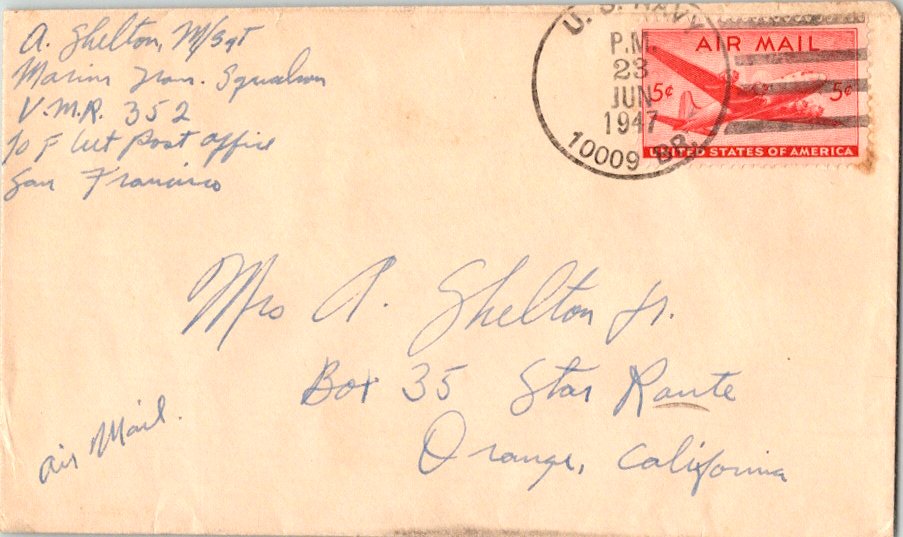 A. Shelton, M/Sgt
Marine Tran. Squadron
V.M.R. 352
℅ Fleet Post Office
San Francisco
U. S. NAVY
P.M.
23
JUN
1947
10009 BR.
AIR MAIL
5¢ 5¢
UNITED STATES OF AMERICA
Mrs A. Shelton Jr.
Box 35 Star Route
Orange, California
Air Mail.